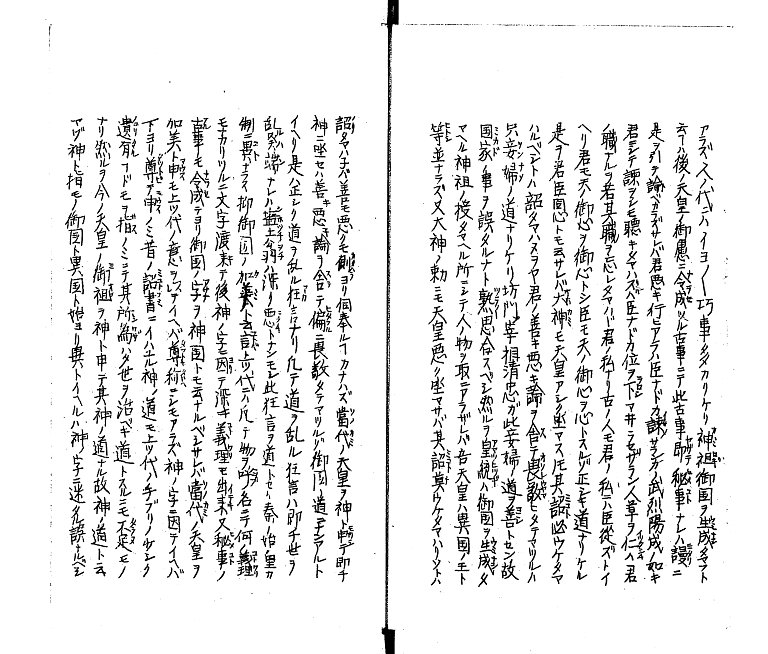 アラズ人代ニハイヨ〱巧事ゾ多カリケリ神祖御国ヲ生成タマフト
云ハ後ノ天皇ノ御慮ニ令成ツル古事ニテ此古事即チ秘事ナレハ謾ニ
是ヲ引テ論ベカラズサレバ君悪キ行ヒアラハ臣ナドカ諌サランヤ武烈陽成ノ如キ
君ニシテ諫ヲシモ聴キタマハズハ臣ナドカ位ヲ下マ井ラセザラン人草ヲ仁ハ君
ノ職ナルヲ若其職ヲ忘レタマハハ君ノ私ナリ古ノ人モ君ノ私ニハ臣従ズトイ
ヘリ君モ天ノ御心ヲ御心トシ臣モ天ノ御心ヲ心トスルゾ正シキ道ナリケル
是ヲ君臣同心トモ云サレバ大神モ天皇アシク坐マス凡其詔必ウケタマ
ハルベシトハ詔タマハヌヲヤ君ノ善キ悪キ論ヲ舎テ畏敬ヒタテマツルハ
只妾婦ノ道ナリケリ坊門宰相清忠ガ此妾婦ノ道ヲ善トセン故
国家ノ事ヲ誤タルナト熟思合スベシ然ルヲ皇統ハ御国ヲ生成タ
マヘル神祖ノ後タマヘル所ニシテ人ノ物ヲ取ニアラザレバ吾天皇ハ異国ノ王ト
等並ナラズ又大神ノ勅ニモ天皇悪ク坐マサバ其詔莫ウケタマハリソトハ
詔タマハネバ善モ悪クモ側ヨリ伺奉ルヿカナハズ當代ノ天皇ヲ神ト申テ即チ
神ニ坐セハ善キ悪キ論ヲ舎テ偏ニ畏敬タテマツルゾ御国ノ道ナンアルト
イヘリ是ハ正シキ道ヲ乱ル狂言ナリ凡テ道ヲ乱ル狂言ハ即チ世ヲ
乱ル端ナレハ塩土翁ノ深ク悪トシモシ此狂言ヲ道トセハ秦ノ始皇カ
制ニ異ナラズ抑御国ノ加美ト云詞上代ニハ凡テ物ヲ呼名ニテ何ノ義理
モナカリツルニ文字渡来テ後神ノ字ニ因テ深キ義理モ出来又秘事ノ
古事モ令成テヨリ御国ノ字ヲ神国トモ云ナルベシサレバ當代ノ天皇ヲ
加美ト申モ上ツ代ノ意ヲ以テイハバ尊称ニシモアラズ神ノ字ニ因テイハバ
下ヨリ尊テ申ノミ昔ノ詔書ニイハユル神ノ道モ上ツ代ノ手ブリノ少シク
遺有ヿドモヲ指ノミニテ其所為ハタ世ヲ治ベキ道トスルニモ不足モノ
ナリ然ルヲ今ノ天皇ノ御祖ヲ神ト申テ其神ノ道ナル故神ノ道ト云
アヅ神ト指モノ御国ト異国ト始ヨリ異トイヘルハ神ノ字ニ迷タル誤ナルベシ